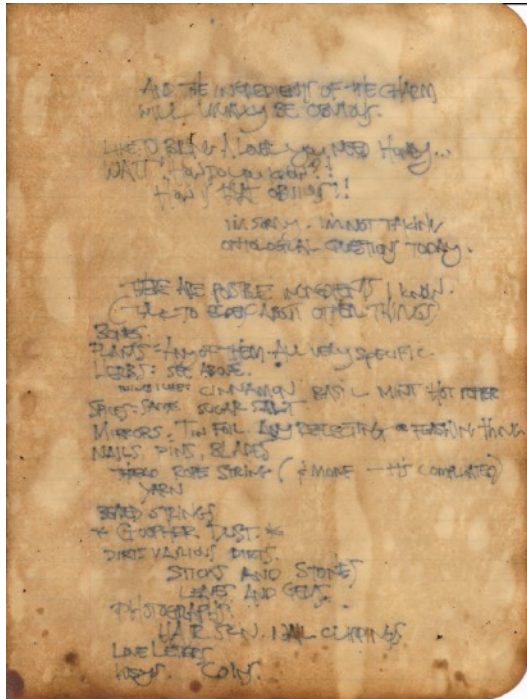 AND THE INGREDIENTS OF THE CHARM
WILL USUALLY BE OBVIOUS.
LIKE TO BRING A LOVE YOU NEED HONEY...
WAIT! HOW DO YOU KNOW?!
HOW IS THAT OBVIOUS?!
I'M SORRY. I'M NOT TAKING
ONTOLOGICAL QUESTIONS TODAY.
THESE ARE POSSIBLE INGREDIENTS I KNOW.
(TALK TO ELDER ABOUT OTHER THINGS)
BONES.
PLANTS: ANY OF THEM. ALL VERY SPECIFIC.
HERBS: SEE ABOVE.
CINNAMON BASIL MINT HOT PEPPER
SPICES: SAME SUGAR SALT
MIRRORS. TIN FOIL. ANY REFLECTING OR FLASHING THING
NAILS, PINS, BLADES
THREAD ROPE STRING (& MORE — IT'S COMPLICATED)
YARN
BEADED STRINGS
* GOOPHER DUST. *
DIRTS VARIOUS DIRTS.
STICKS AND STONES
LEAVES AND GEMS.
PHOTOGRAPHS.
HAIR. SKIN. NAIL CLIPPINGS.
LOVE LETTERS
COINS.